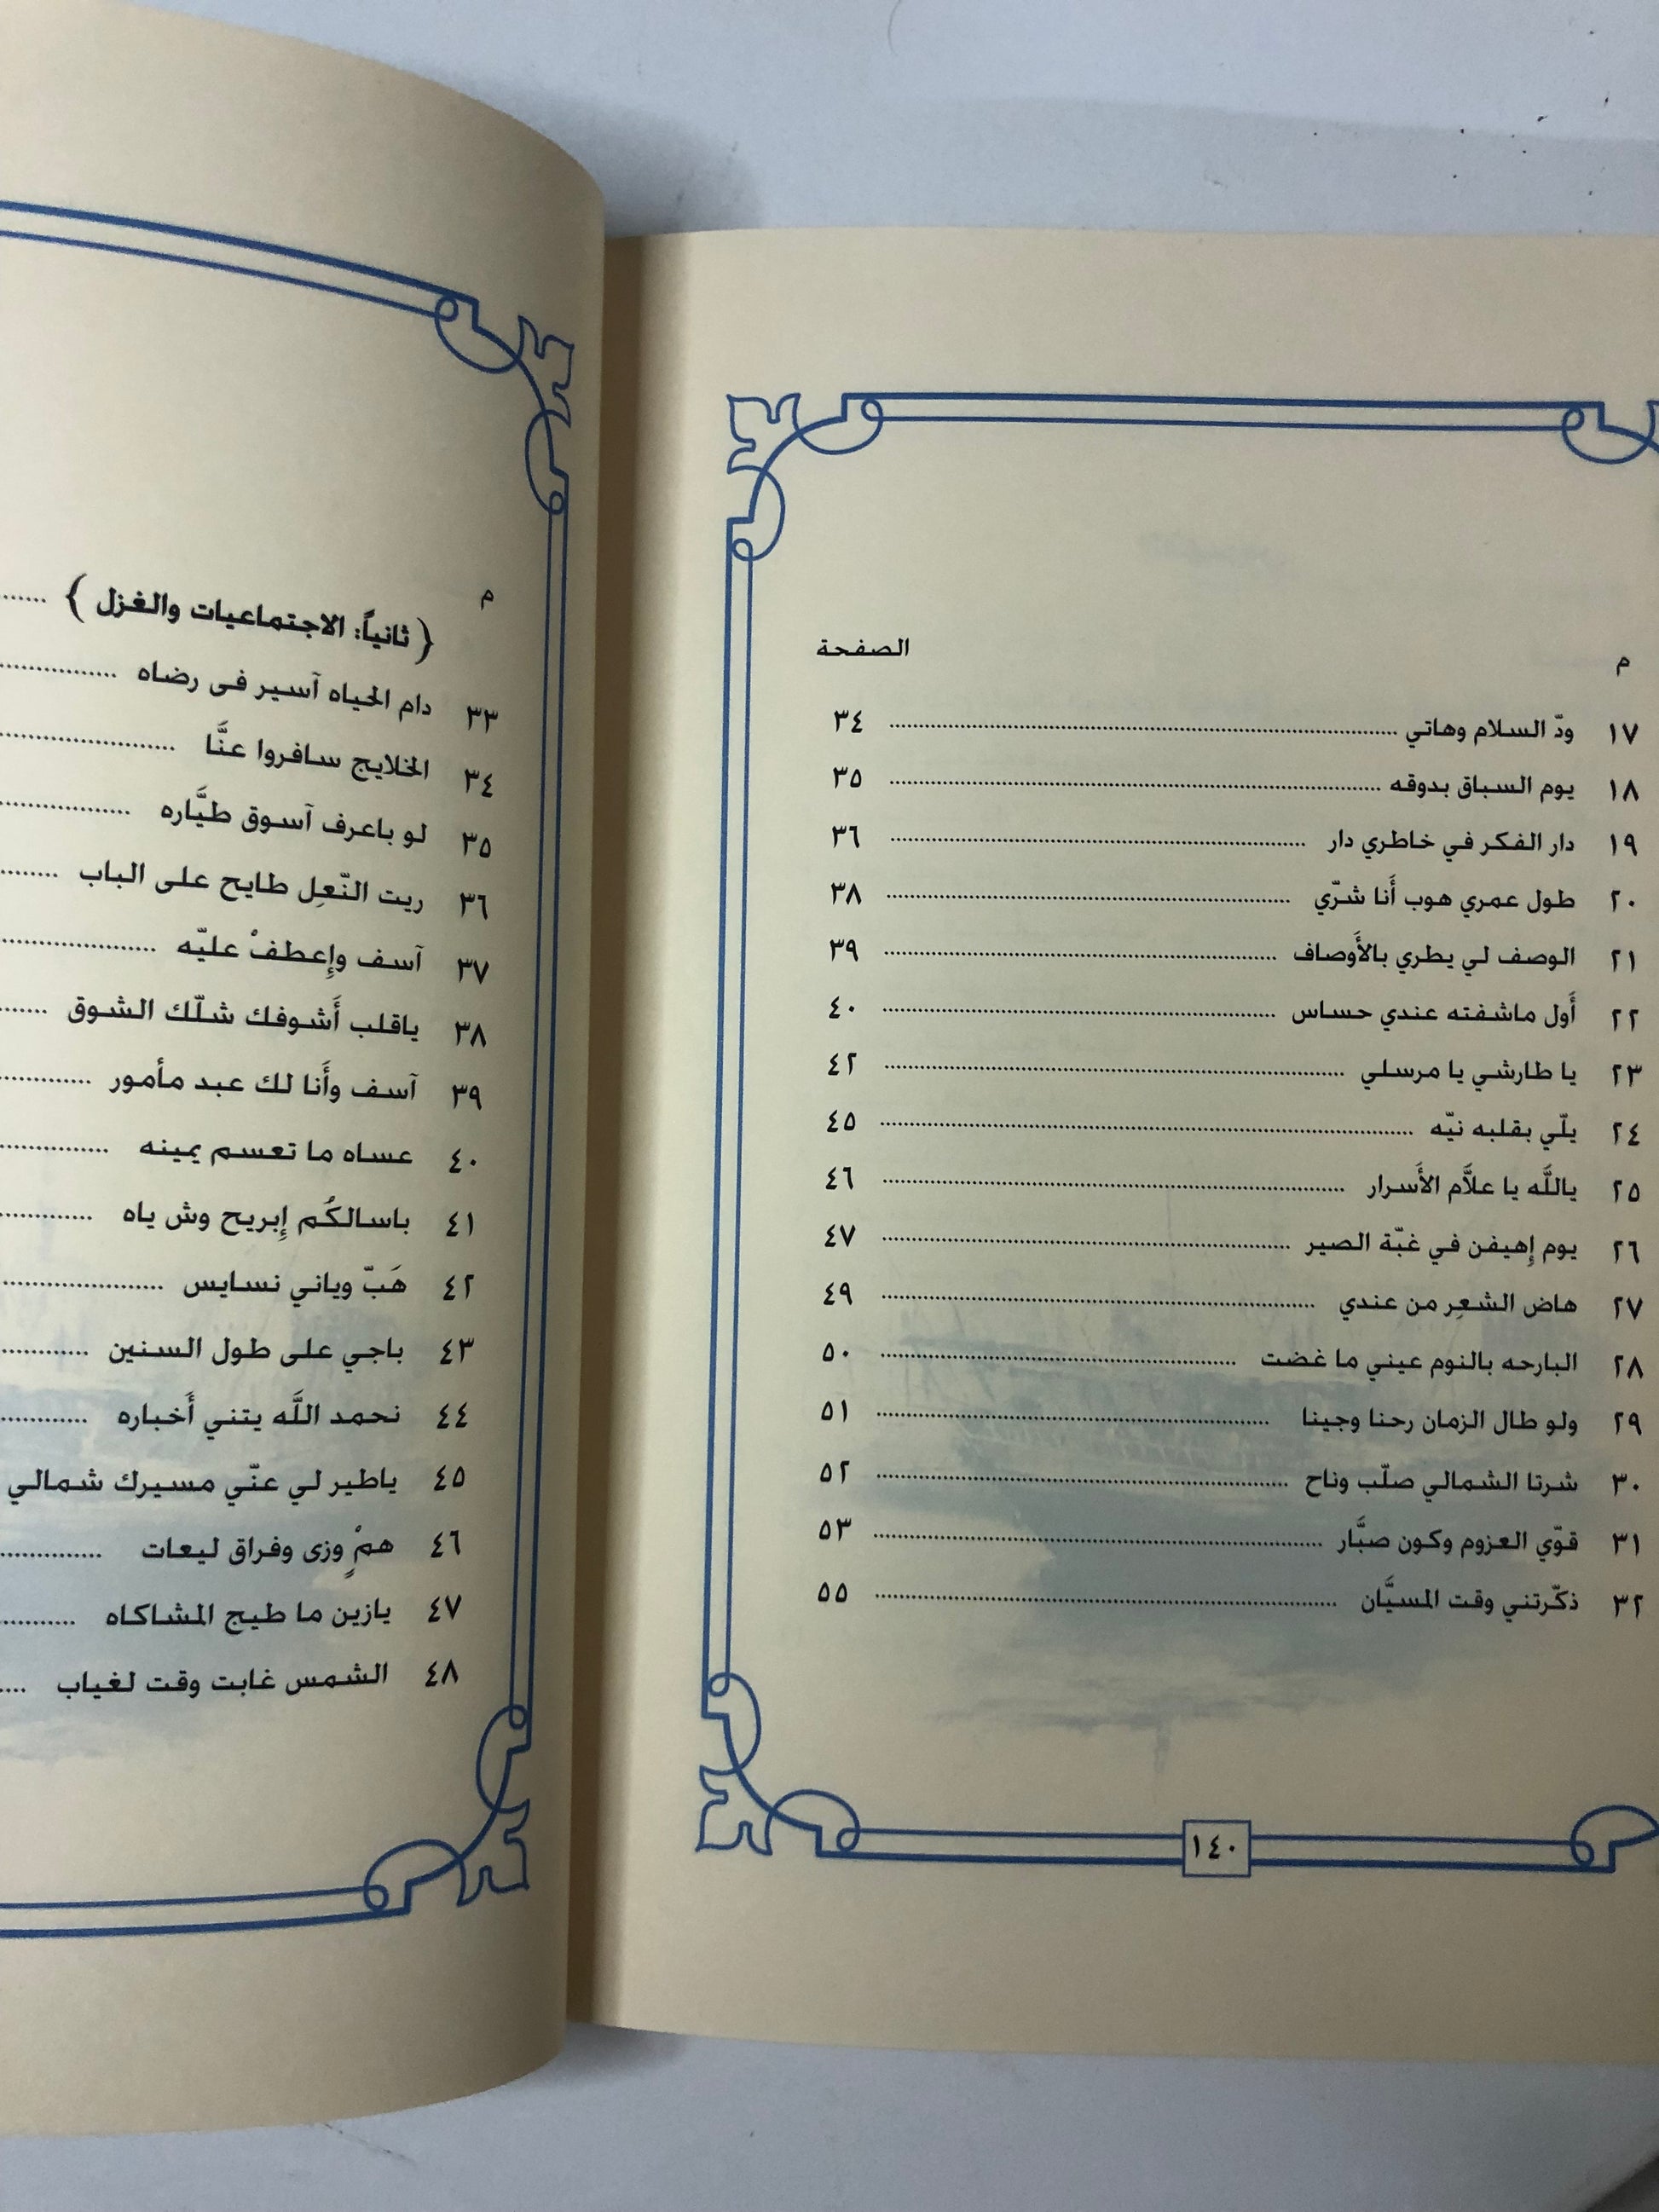 م الصفحة
١٧ ودّ السلام وهاتي ٣٤
١٨ يوم السباق بدوقه ٣٥
١٩ دار الفكر في خاطري دار ٣٦
٢٠ طول عمري هوب أَنا شرّي ٣٨
٢١ الوصف لي يطري بالأَوصاف ٣٩
٢٢ أَول ماشفته عندي حساس ٤٠
٢٣ يا طارشي يا مرسلي ٤٢
٢٤ يلّي بقلبه نيّه ٤٥
٢٥ ياللَّه يا علاَّم الأَسرار ٤٦
٢٦ يوم إِهيفن في غبّة الصير ٤٧
٢٧ هاض الشعِر من عندي ٤٩
٢٨ البارحه بالنوم عيني ما غضت ٥٠
٢٩ ولو طال الزمان رحنا وجينا ٥١
٣٠ شرتا الشمالي صلّب وناح ٥٢
٣١ قوّي العزوم وكون صبَّار ٥٣
٣٢ ذكّرتني وقت المسيَّان ٥٥
١٤٠
م
﴿ ثانياً: الاجتماعيات والغزل ﴾
٣٣ دام الحياه آسير فى رضاه
٣٤ الخلايج سافروا عنَّا
٣٥ لو باعرف آسوق طيَّاره
٣٦ ريت النّعِل طايح على الباب
٣٧ آسف وإِعطفْ عليّه
٣٨ ياقلب أَشوفك شلّك الشوق
٣٩ آسف وأَنا لك عبد مأمور
٤٠ عساه ما تعسم يمينه
٤١ باسالكُم إِبريح وش ياه
٤٢ هَبّ وياني نسايس
٤٣ باجي على طول السنين
٤٤ نحمد اللَّه يتني أَخباره
٤٥ ياطير لي عنّي مسيرك شمالي
٤٦ همْ وِزى وفراق ليعات
٤٧ يازين ما طيج المشاكاه
٤٨ الشمس غابت وقت لغياب